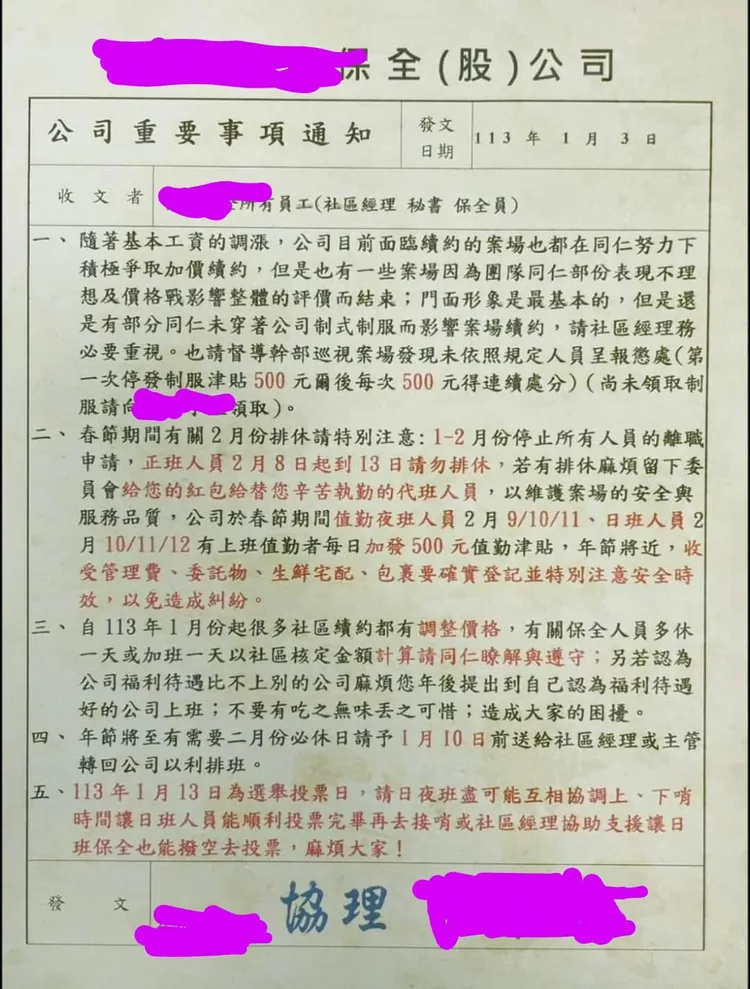 保全(股)公司
公司重要事項通知
發文日期
113 年 1 月 3 日
收文者
所有員工(社區經理 秘書 保全員)
一、隨著基本工資的調漲,公司目前面臨續約的案場也都在同仁努力下
積極爭取加價續約,但是也有一些案場因為團隊同仁部份表現不理
想及價格戰影響整體的評價而結束;門面形象是最基本的,但是還
是有部分同仁未穿著公司制式制服而影響案場續約,請社區經理務
必要重視。也請督導幹部巡視案場發現未依照規定人員呈報懲處(第
一次停發制服津貼500元爾後每次500元得連續處分)(尚未領取制
服請向領取)。
二、春節期間有關2月份排休請特別注意:1-2月份停止所有人員的離職
申請,正班人員2月8日起到13日請勿排休,若有排休麻煩留下委
員會給您的紅包給替您辛苦執勤的代班人員,以維護案場的安全與
服務品質,公司於春節期間值勤夜班人員2月9/10/11、日班人員2
月10/11/12有上班值勤者每日加發500元值勤津貼,年節將近,收
受管理費、委託物、生鮮宅配、包裹要確實登記並特別注意安全時
效,以免造成糾紛。
三、自113年1月份起很多社區續約都有調整價格,有關保全人員多休
一天或加班一天以社區核定金額計算請同仁瞭解與遵守;另若認為
公司福利待遇比不上別的公司麻煩您年後提出到自己認為福利待遇
好的公司上班;不要有吃之無味丟之可惜;造成大家的困擾。
四、年節將至有需要二月份必休日請予1月10日前送給社區經理或主管
轉回公司以利排班。
五、113年1月13日為選舉投票日,請日夜班盡可能互相協調上、下哨
時間讓日班人員能順利投票完畢再去接哨或社區經理協助支援讓日
班保全也能撥空去投票,麻煩大家!
發文
協理